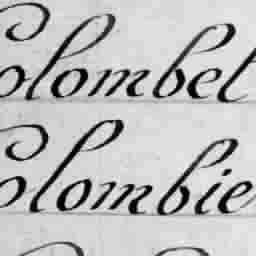 Colombet
Colombie